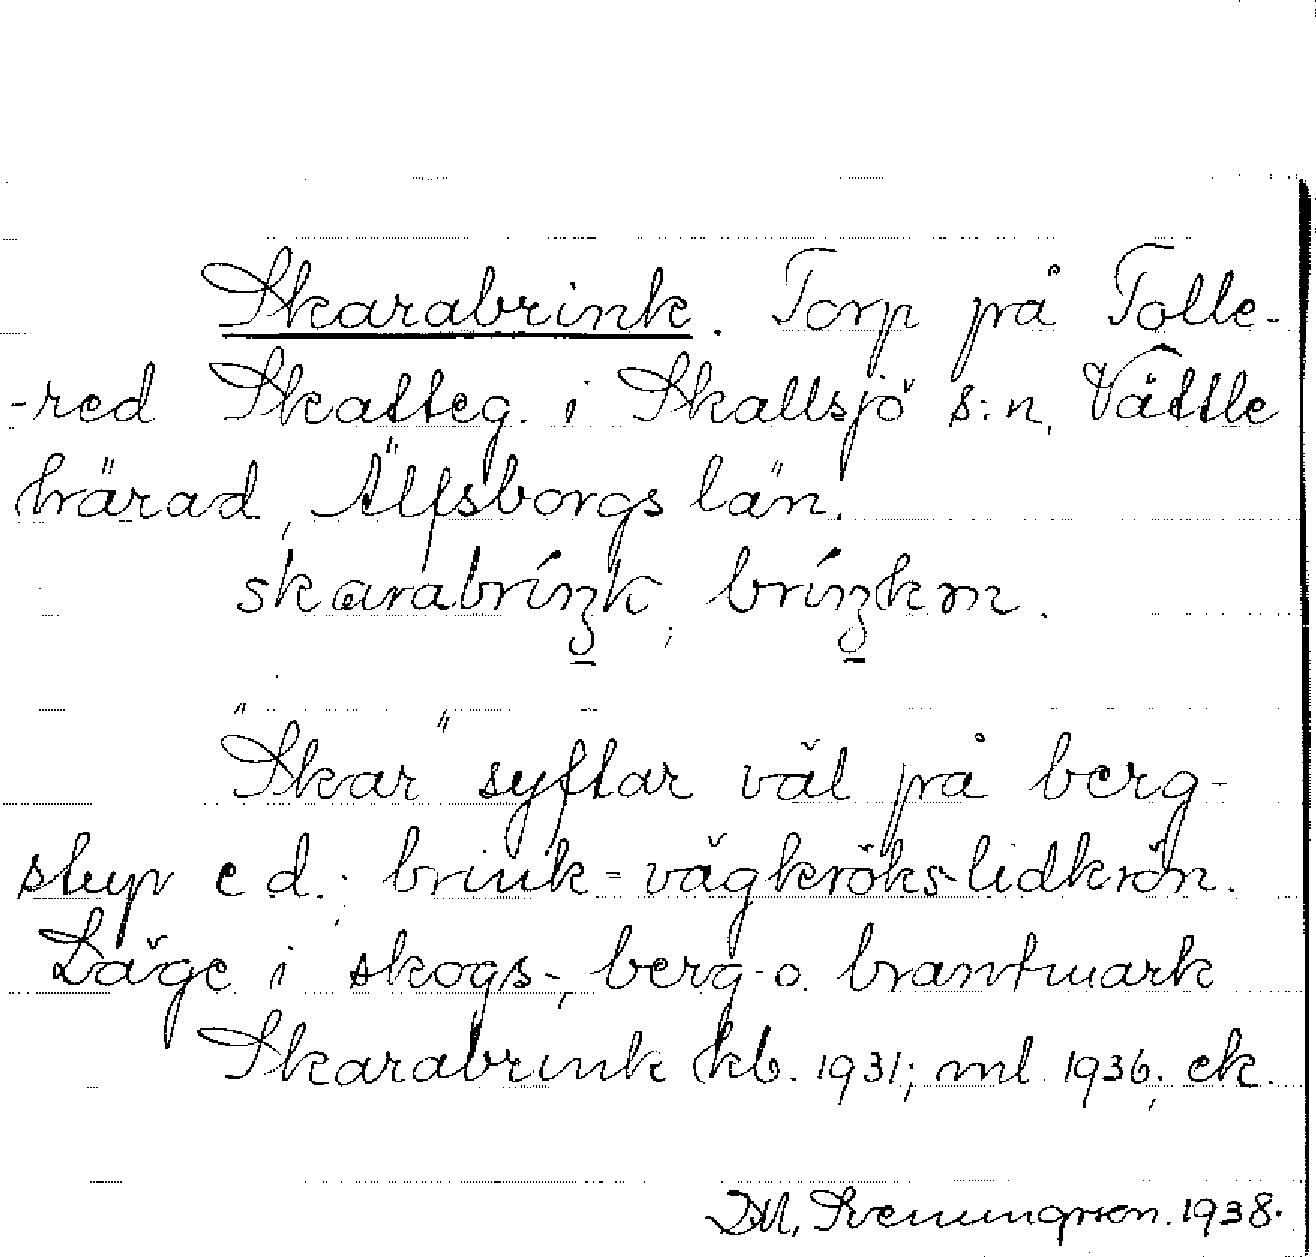 Skarabrink. Torp på Tolle-
-red Skatteg. i Skallsjö s:n, Vättle
härad, Älfsborgs län.
skarabríŋk; bríŋkɳ.
"Skar" syftar väl på berg-
stup e d.; brink = vägkröks-lidkrön.
Läge i skogs-, berg- o. brantmark
Skarabrink kb. 1931; ml 1936; ek.
D.M. Svenungsson. 1938.